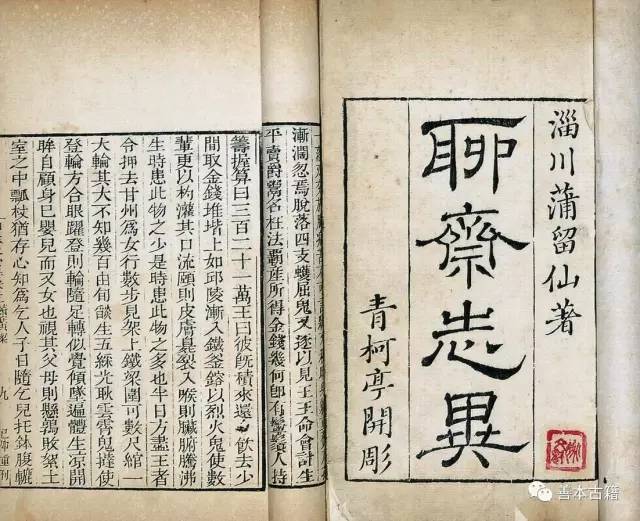 淄川蒲留仙著
聊齋志異
青柯亭開彫
漸濶忽焉脫落四支蠖屈鬼又逐以見王王命會計生
平賣爵鬻名枉法霸産所得金錢幾何即有鬡鬚人持
籌握算曰三百二十一萬王曰彼既積來還飲去少
間取金錢堆堦上如邱陵漸入鐵釜鎔以烈火鬼使數
輩更以杓灌其口流頤則皮膚臭裂入喉則臟腑騰沸
生時患此物之少是時患此物之多也半日方盡王者
令押去甘州爲女行數步見架上鐵梁圍可數尺綰一
火輪其大不知幾百由旬燄生五綵光耿雲霄鬼撻使
登輪方合眼躍登則輪隨足轉似覺傾墜遍體生凉開
眸自顧身已嬰兒而又女也視其父母則懸鶉敗絮土
室之中瓢杖猶存心知爲乞人子日隨乞兒托鉢腹轆
九
善本古籍